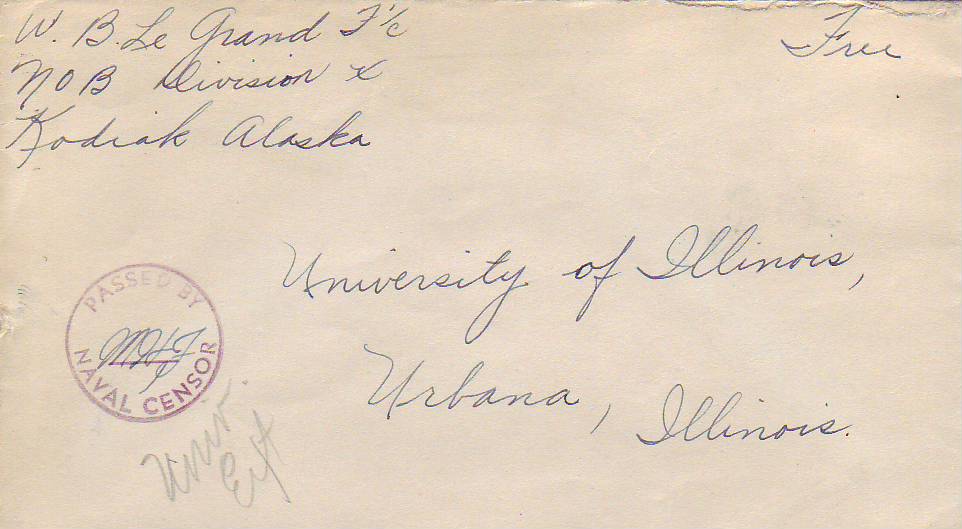 W. B. Le Grand F 1/c
Free
NOB Division X
Kodiak Alaska
University of Illinois,
Urbana, Illinois.
PASSED BY
NAVAL CENSOR
Univ.
Ext